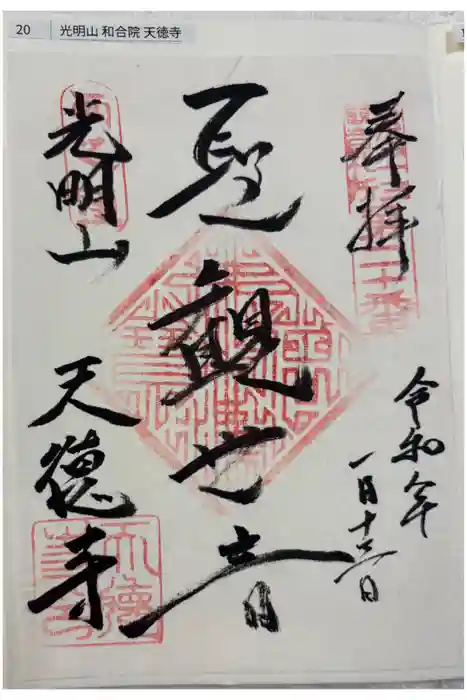 20 光明山 和合院 天徳寺
奉拝
令和年
一月十三日
聖観世音
光明山
天徳寺